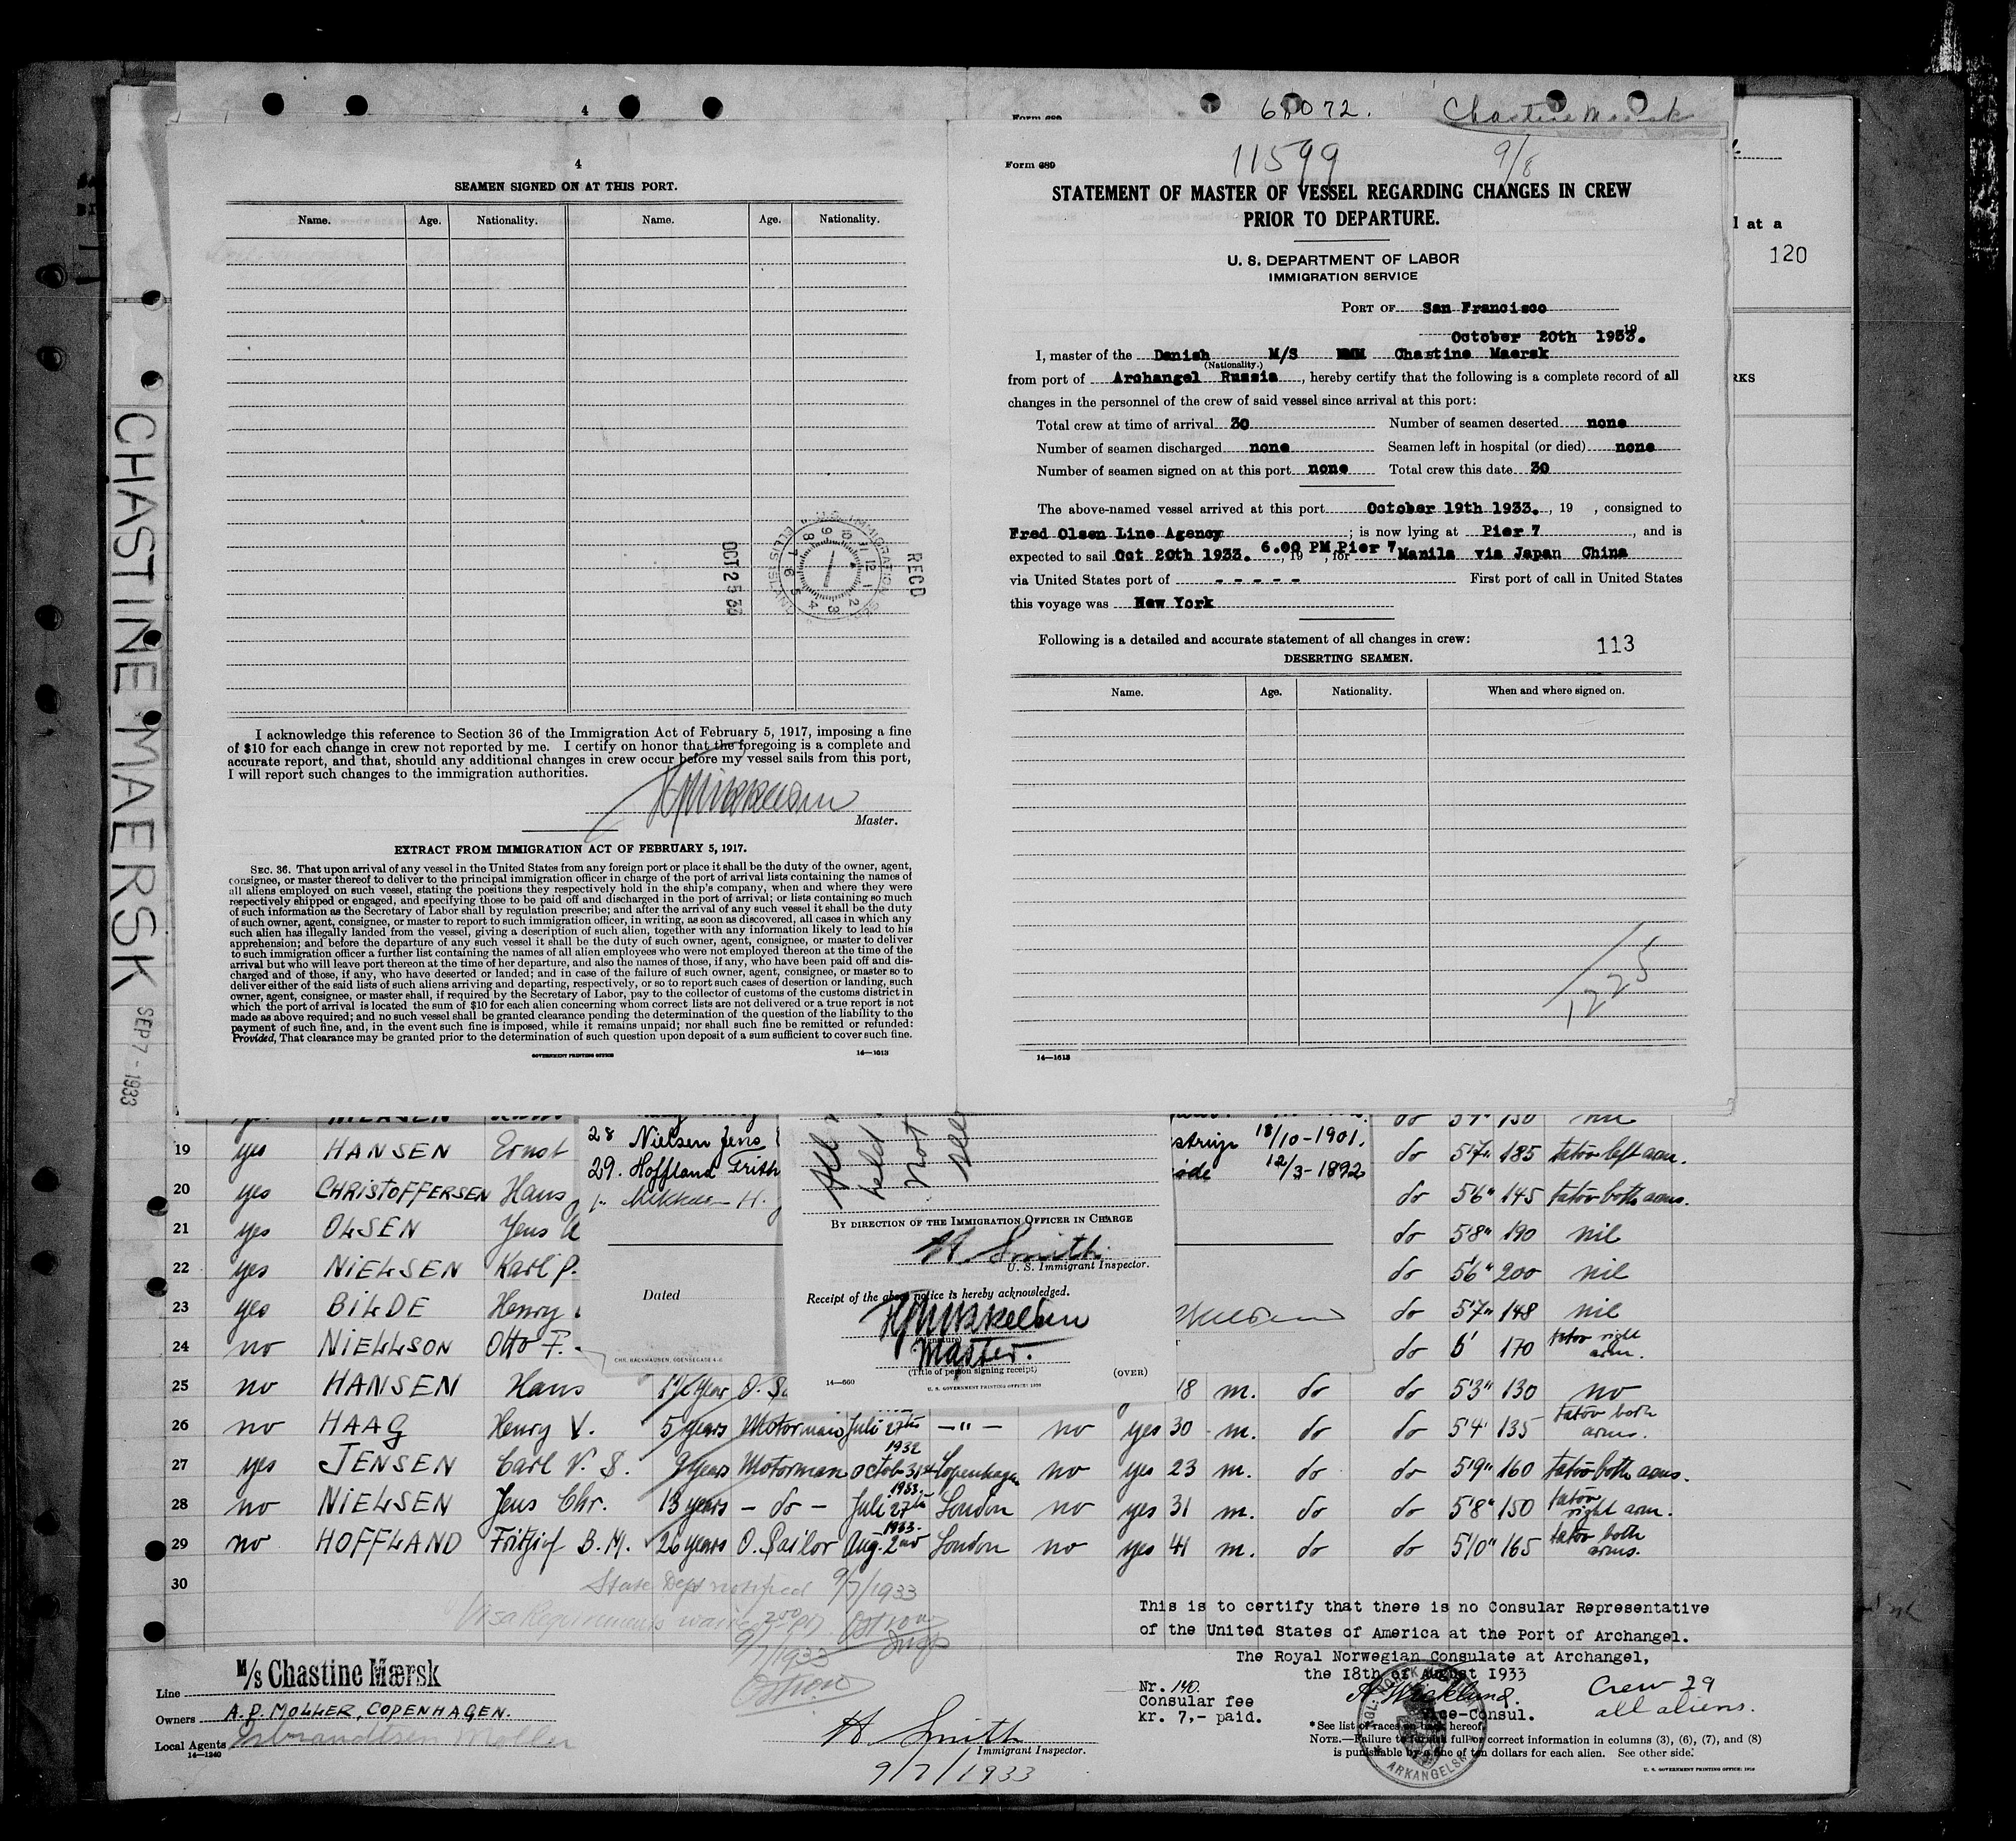 4
Form 689
68072.
Chastine Maersk
4
SEAMEN SIGNED ON AT THIS PORT.
Name. Age. Nationality. Name. Age. Nationality.
OCT 25 33
U.S. IMMIGRATION
RECD
I acknowledge this reference to Section 36 of the Immigration Act of February 5, 1917, imposing a fine
of $10 for each change in crew not reported by me. I certify on honor that the foregoing is a complete and
accurate report, and that, should any additional changes in crew occur before my vessel sails from this port,
I will report such changes to the immigration authorities.
HMikkelsen
Master.
EXTRACT FROM IMMIGRATION ACT OF FEBRUARY 5, 1917.
SEC. 36. That upon arrival of any vessel in the United States from any foreign port or place it shall be the duty of the owner, agent,
consignee, or master thereof to deliver to the principal immigration officer in charge of the port of arrival lists containing the names of
all aliens employed on such vessel, stating the positions they respectively hold in the ship's company, when and where they were
respectively shipped or engaged, and specifying those to be paid off and discharged in the port of arrival; or lists containing so much
of such information as the Secretary of Labor shall by regulation prescribe; and after the arrival of any such vessel it shall be the duty
of such owner, agent, consignee, or master to report to such immigration officer, in writing, as soon as discovered, all cases in which any
such alien has illegally landed from the vessel, giving a description of such alien, together with any information likely to lead to his
apprehension; and before the departure of any such vessel it shall be the duty of such owner, agent, consignee, or master to deliver
to such immigration officer a further list containing the names of all alien employees who were not employed thereon at the time of the
arrival but who will leave port thereon at the time of her departure, and also the names of those, if any, who have been paid off and dis-
charged and of those, if any, who have deserted or landed; and in case of the failure of such owner, agent, consignee, or master so to
deliver either of the said lists of such aliens arriving and departing, respectively, or so to report such cases of desertion or landing, such
owner, agent, consignee, or master shall, if required by the Secretary of Labor, pay to the collector of customs of the customs district in
which the port of arrival is located the sum of $10 for each alien concerning whom correct lists are not delivered or a true report is not
made as above required; and no such vessel shall be granted clearance pending the determination of the question of the liability to the
payment of such fine, and, in the event such fine is imposed, while it remains unpaid; nor shall such fine be remitted or refunded:
Provided, That clearance may be granted prior to the determination of such question upon deposit of a sum sufficient to cover such fine.
GOVERNMENT PRINTING OFFICE 14—1613
Form 689
11599
9/8
STATEMENT OF MASTER OF VESSEL REGARDING CHANGES IN CREW
PRIOR TO DEPARTURE.
U. S. DEPARTMENT OF LABOR
IMMIGRATION SERVICE
PORT OF San Francisco
October 20th 1933. 19
I, master of the Danish M/S Chastine Maersk
(Nationality.)
from port of Archangel Russia, hereby certify that the following is a complete record of all
changes in the personnel of the crew of said vessel since arrival at this port:
Total crew at time of arrival 30 Number of seamen deserted none
Number of seamen discharged none Seamen left in hospital (or died) none
Number of seamen signed on at this port none Total crew this date 30
The above-named vessel arrived at this port October 19th 1933., 19 , consigned to
Fred Olsen Line Agency ; is now lying at Pier 7 , and is
expected to sail Oct 20th 1933. 6.00 PM Pier 7, 19 , for Manila via Japan China
via United States port of - - - - - First port of call in United States
this voyage was New York
Following is a detailed and accurate statement of all changes in crew:
113
DESERTING SEAMEN.
Name. Age. Nationality. When and where signed on.
1225
14—1613
l at a
120
RKS
CHASTINE MAERSK SEP 7 - 1933
do 5'7" 150 nil
19 yes HANSEN Ernst do 5'7" 185 tatöv left arm.
20 yes CHRISTOFFERSEN Hans do 5'6" 145 tatöv both arms.
21 yes OLSEN Jens A do 5'8" 190 nil
22 yes NIELSEN Karl P. do 5'6" 200 nil
23 yes BILDE Henry do 5'7" 148 nil
24 no NIELLSON Otto F. do 6' 170 tatöv right arm.
25 no HANSEN Hans 1½ Year O. Sa 18 m. do do 5'3" 130 no
26 no HAAG Henry V. 5 years Motorman Juli 27th — " — no yes 30 m. do do 5'4" 135 tatöv both arms.
27 yes JENSEN Carl V. S. 9 years Motorman 1932 Octob 31st Copenhagen no yes 23 m. do do 5'9" 160 tatöv both arms.
28 no NIELSEN Jens Chr. 13 years - do - 1933. Juli 27th London no yes 31 m. do do 5'8" 150 tatöv right arm.
29 no HOFFLAND Fritjof B.M. 26 years O. Sailor 1933. Aug. 2nd London no yes 41 m. do do 5'10" 165 tatöv both arms.
30
28 Nielsen Jens
29. Hoffland Frith
Mikkelsen H.
strup 18/10-1901.
öde 12/3-1892
Dated
CHR. BACKHAUSEN, ODENSEGADE 4-6
not
BY DIRECTION OF THE IMMIGRATION OFFICER IN CHARGE
H Smith
U. S. Immigrant Inspector.
Receipt of the above notice is hereby acknowledged.
HMikkelsen
(Signature)
Master.
(Title of person signing receipt)
14—660 (OVER)
U. S. GOVERNMENT PRINTING OFFICE
State Dept notified 9/7/1933
Visa Requirements waived
9/7/1933
M/s Chastine Mærsk
Line
Owners A.P. MOLLER, COPENHAGEN.
Local Agents Isbrandtsen Moller
14—1240
H Smith
Immigrant Inspector.
9/7/1933
This is to certify that there is no Consular Representative
of the United States of America at the Port of Archangel.
The Royal Norwegian Consulate at Archangel,
the 18th of August 1933
Nr. 140.
Consular fee
kr. 7,- paid.
A Wicklund.
Vice-Consul.
ARKANGELSK
Crew 29
all aliens.
*See list of races on back hereof.
NOTE.—Failure to furnish full or correct information in columns (3), (6), (7), and (8)
is punishable by a fine of ten dollars for each alien. See other side.
U. S. GOVERNMENT PRINTING OFFICE